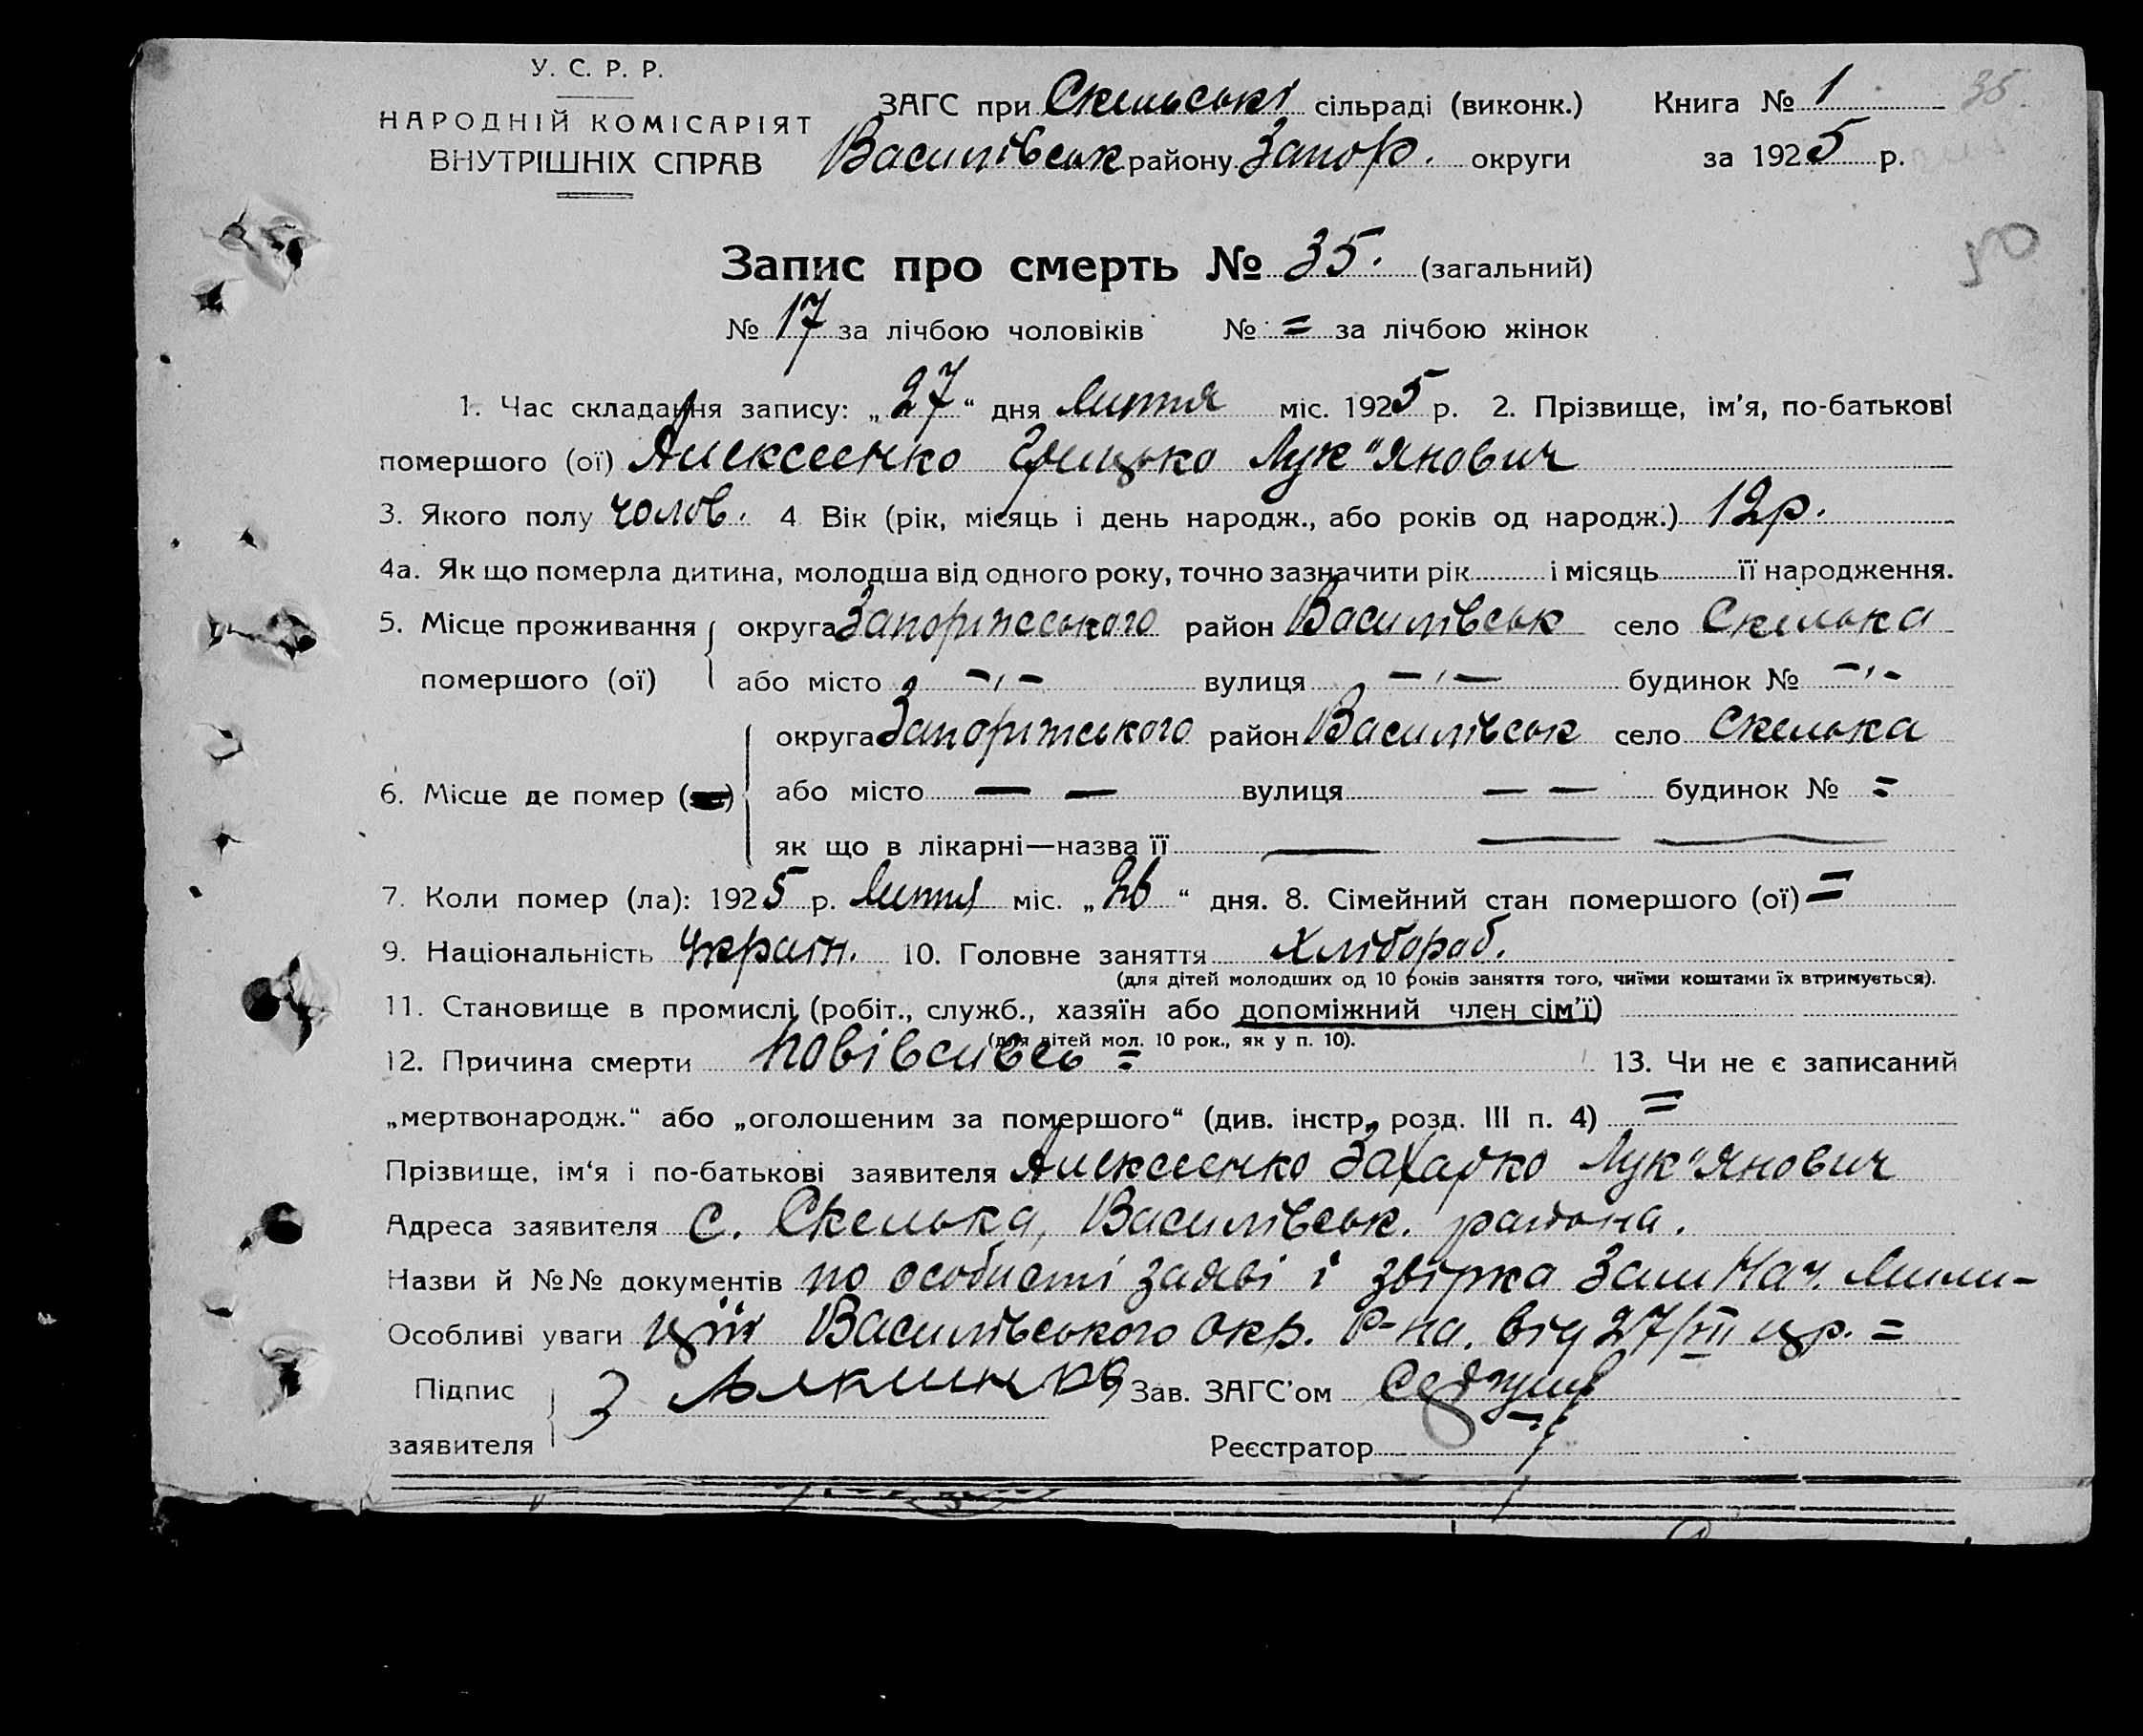 У. С. Р. Р.
НАРОДНІЙ КОМІСАРІЯТ
ВНУТРІШНІХ СПРАВ
ЗАГС при Скельські сільраді (виконк.) Книга № 1 35.
Василівськ району Запор. округи за 1925 р.
50
Запис про смерть № 35. (загальний)
№ 17 за лічбою чоловіків № = за лічбою жінок
1. Час складання запису: „27“ дня Липня міс. 1925 р. 2. Прізвище, ім'я, по-батькові
помершого (ої) Алексеенко Грицько Лук"янович
3. Якого полу чолов. 4 Вік (рік, місяць і день народж., або років од народж.) 12р.
4а. Як що померла дитина, молодша від одного року, точно зазначити рік і місяць її народження.
5. Місце проживання округа Запоріжського район Василівськ село Скелька
помершого (ої) або місто -,- вулиця -,- будинок № -,-
округа Запоріжського район Василівськ село Скелька
6. Місце де помер ( ) або місто — — вулиця — — будинок № =
як що в лікарні—назва її — — —
7. Коли помер (ла): 1925 р. Липня міс. „26“ дня. 8. Сімейний стан помершого (ої) =
9. Національність Україн. 10. Головне заняття Хлібороб.
(для дітей молодших од 10 років заняття того, чиїми коштами їх втримується).
11. Становище в промислі (робіт., служб., хазяїн або допоміжний член сім'ї)
(для дітей мол. 10 рок., як у п. 10).
12. Причина смерти повівсивсь = 13. Чи не є записаний
„мертвонародж.“ або „оголошеним за помершого“ (див. інстр. розд. III п. 4) =
Прізвище, ім'я і по-батькові заявителя Алексеенко Захарко Лук"янович
Адреса заявителя с. Скелька, Василівськ. района.
Назви й №№ документів по особисті заяві і Зам Нач. Мили-
Особливі уваги ції Василівського окр. Р-на. від 27/VII цр. =
Підпис З Зав. ЗАГС'ом
заявителя Реєстратор